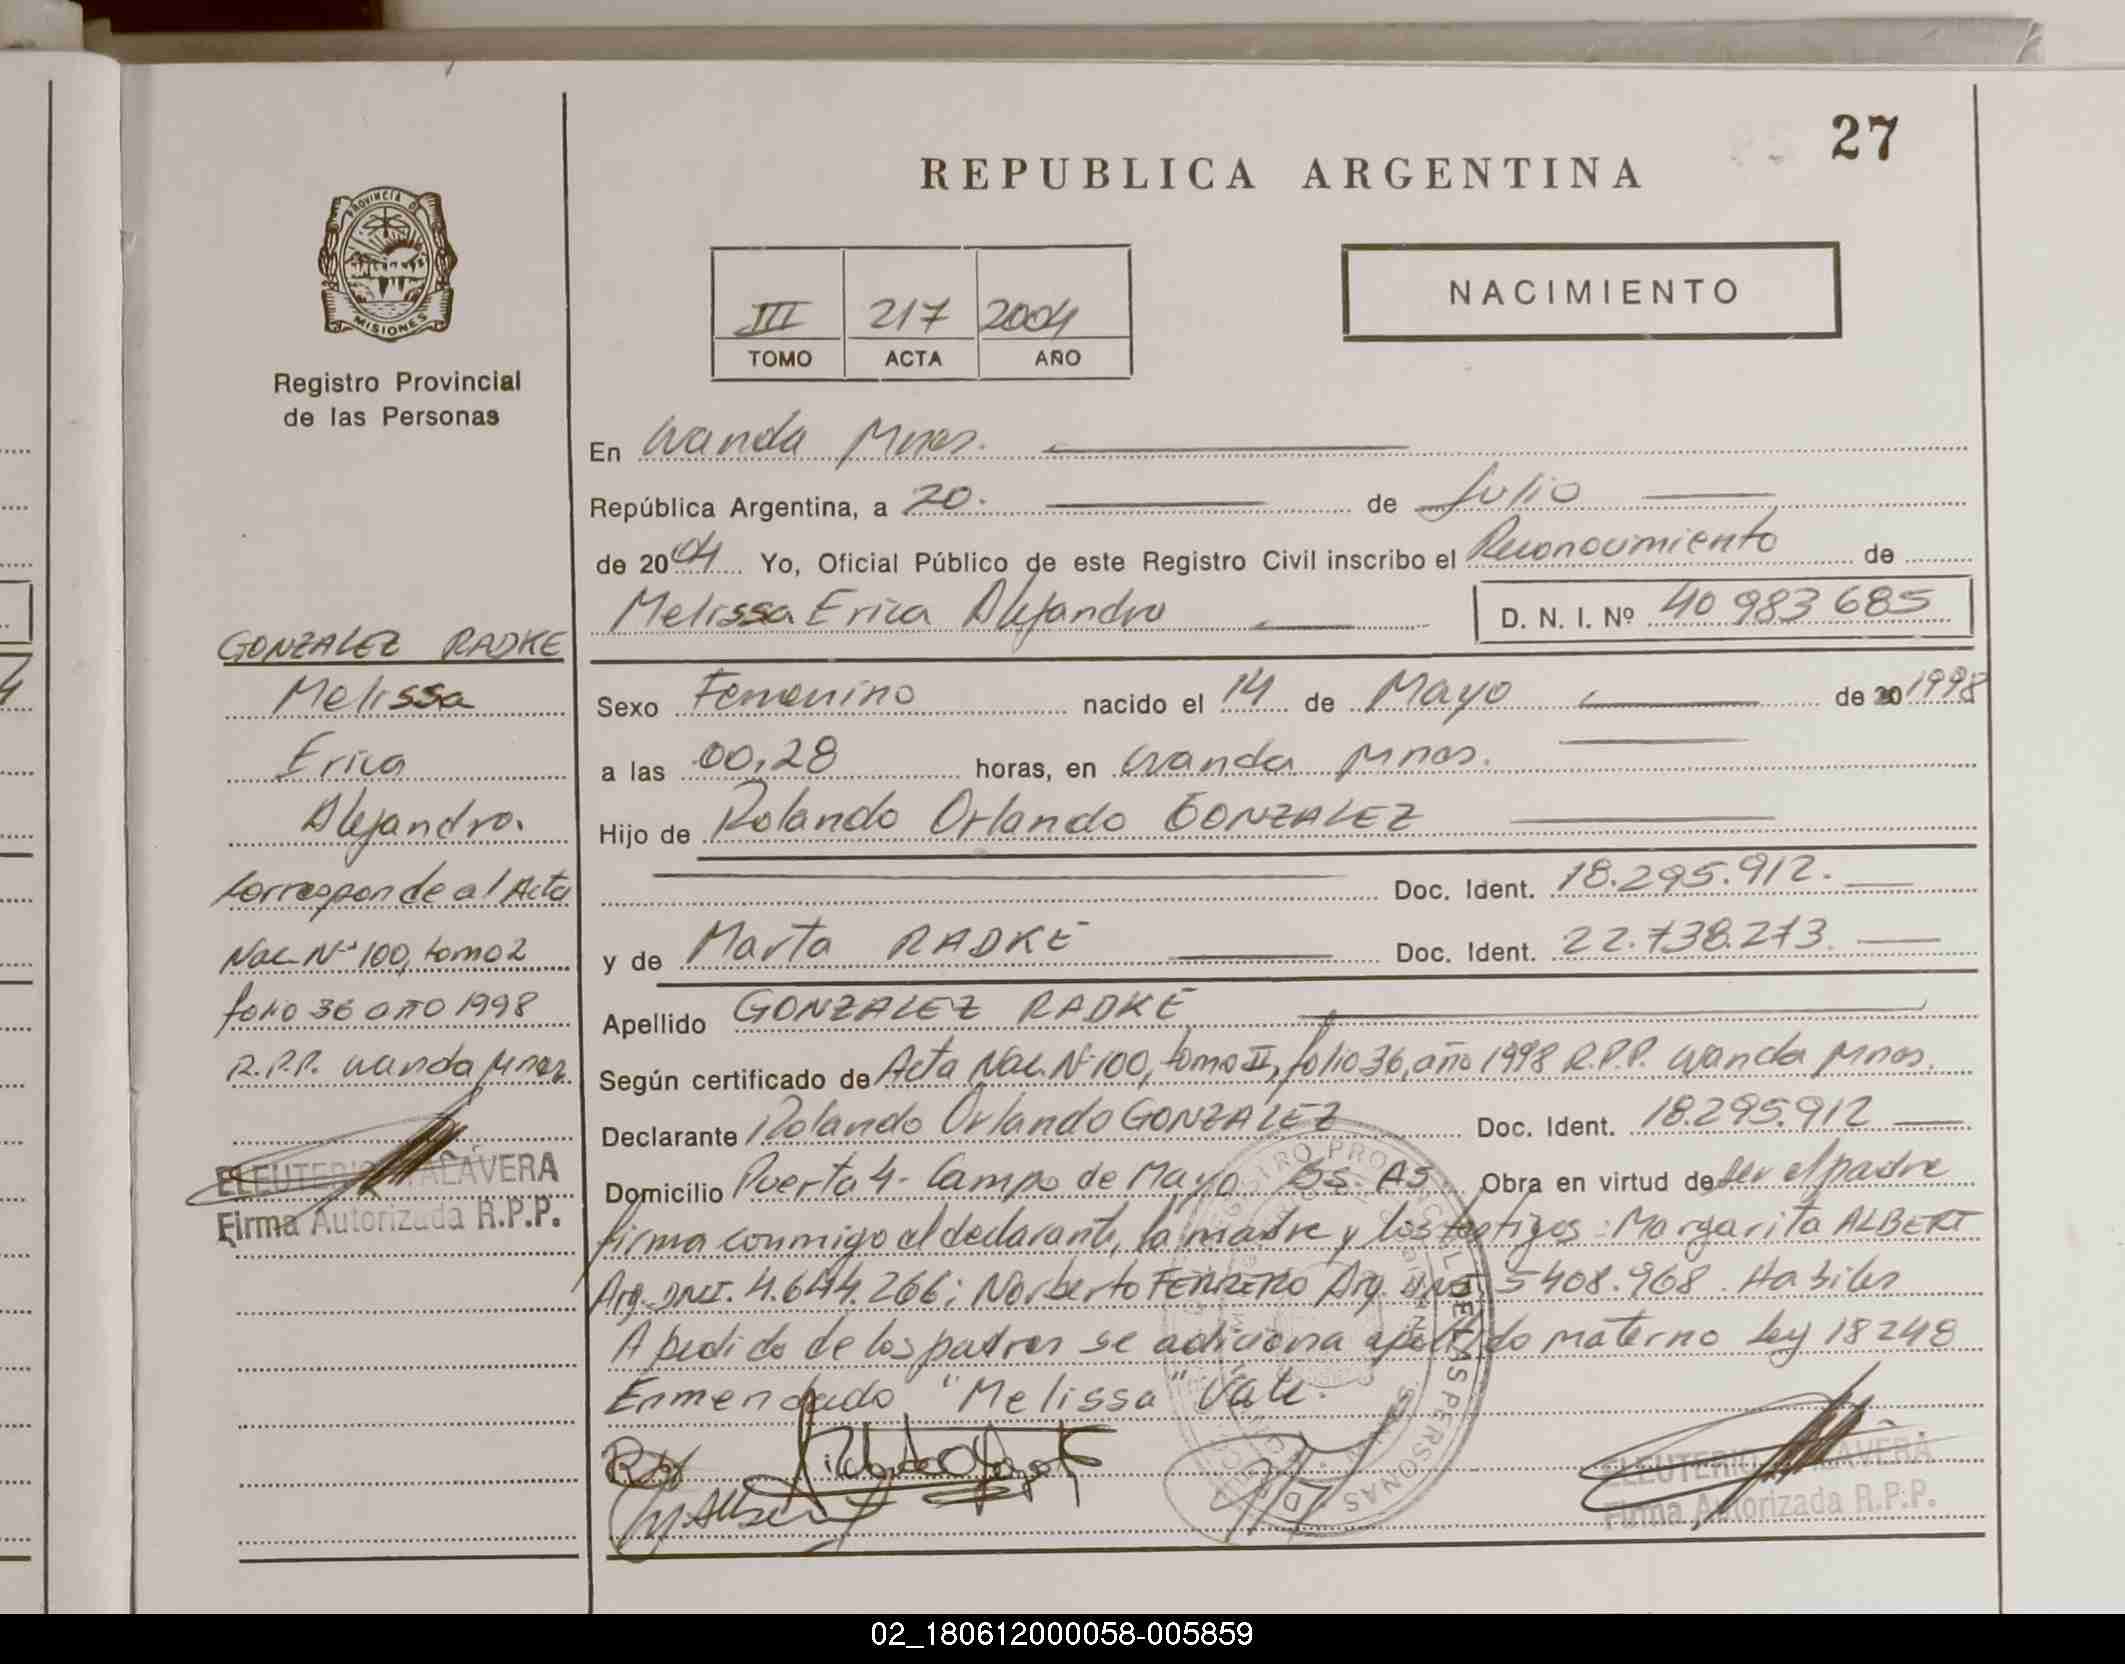 27
REPUBLICA ARGENTINA
PROVINCIA DE
MISIONES
Registro Provincial
de las Personas
III 217 2004
TOMO ACTA AÑO
NACIMIENTO
En Wanda Mnes.
República Argentina, a 20. de Julio
de 2004 Yo, Oficial Público de este Registro Civil inscribo el Reconocimiento de
Melissa Erica Alejandra D. N. I. Nº 40 983 685
Sexo Femenino nacido el 14 de Mayo de 20 1998
a las 00,28 horas, en Wanda Mnes.
Hijo de Rolando Orlando GONZALEZ
Doc. Ident. 18.295.912.
y de Marta RADKE Doc. Ident. 22.738.273.
Apellido GONZALEZ RADKE
Según certificado de Acta Nac. Nº 100, tomo II, folio 36, año 1998 R.P.P. Wanda Mnes.
Declarante Rolando Orlando GONZALEZ Doc. Ident. 18.295.912
Domicilio Puerta 4 - Campo de Mayo Bs. As Obra en virtud de ser el padre
firma conmigo el declarante, la madre y los testigos: Margarita ALBERT
Arg. DNI. 4.644.266; Norberto FERRERO Arg. DNI. 5408.968. Habiles
A pedido de los padres se adiciona apellido materno Ley 18248
Enmendado "Melissa" Vale.
ELEUTERIO TALAVERA
Firma Autorizada R.P.P.
GONZALEZ RADKE
Melissa
Erica
Alejandra.
Corresponde al Acta
Nac. Nº 100, tomo 2
folio 36 año 1998
R.P.P. Wanda Mnes.
ELEUTERIO TALAVERA
Firma Autorizada R.P.P.
02_180612000058-005859